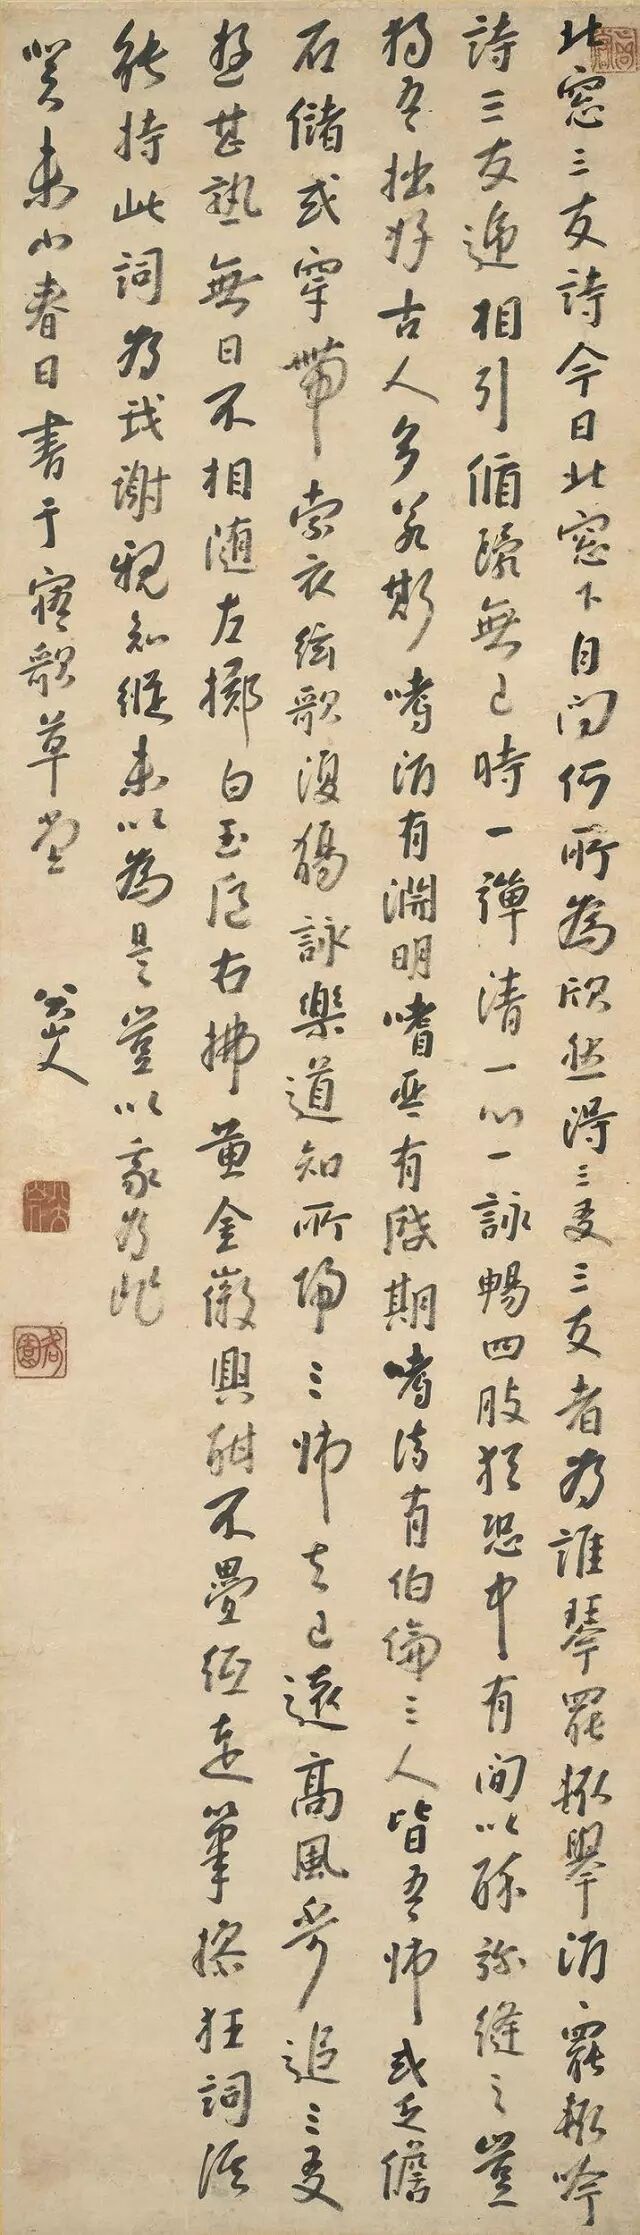 北窓三友詩今日北窓下自問何所為欣然得三友三友者為誰琴罷輒舉酒〻罷輒吟
詩三友遞相引循環無已時一彈清一心一詠暢四肢猶恐中有間以酔弥縫之豈
獨吾拙好古人多若斯嗜酒有淵明嗜琴有啟期嗜詩有伯倫三人皆吾師或乏儋
石儲或穿帶索衣絃歌復觴詠樂道知所歸三師去已遠高風不可追三友
遊甚熟無日不相隨左擲白玉卮右拂黃金徽興酣不疊紙走筆操狂詞誰
能持此詞為我謝親知縱未以為是豈以我為非
癸未小春日書于寤歌草堂
八大山人